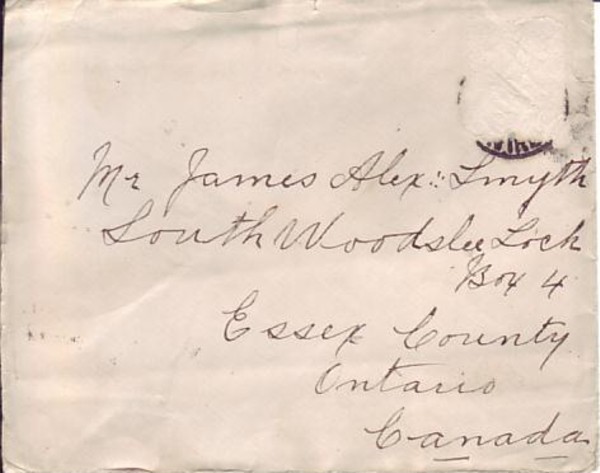 Mr James Alex: Smyth
South Woodslee Lock
Box 4
Essex County
Ontario
Canada